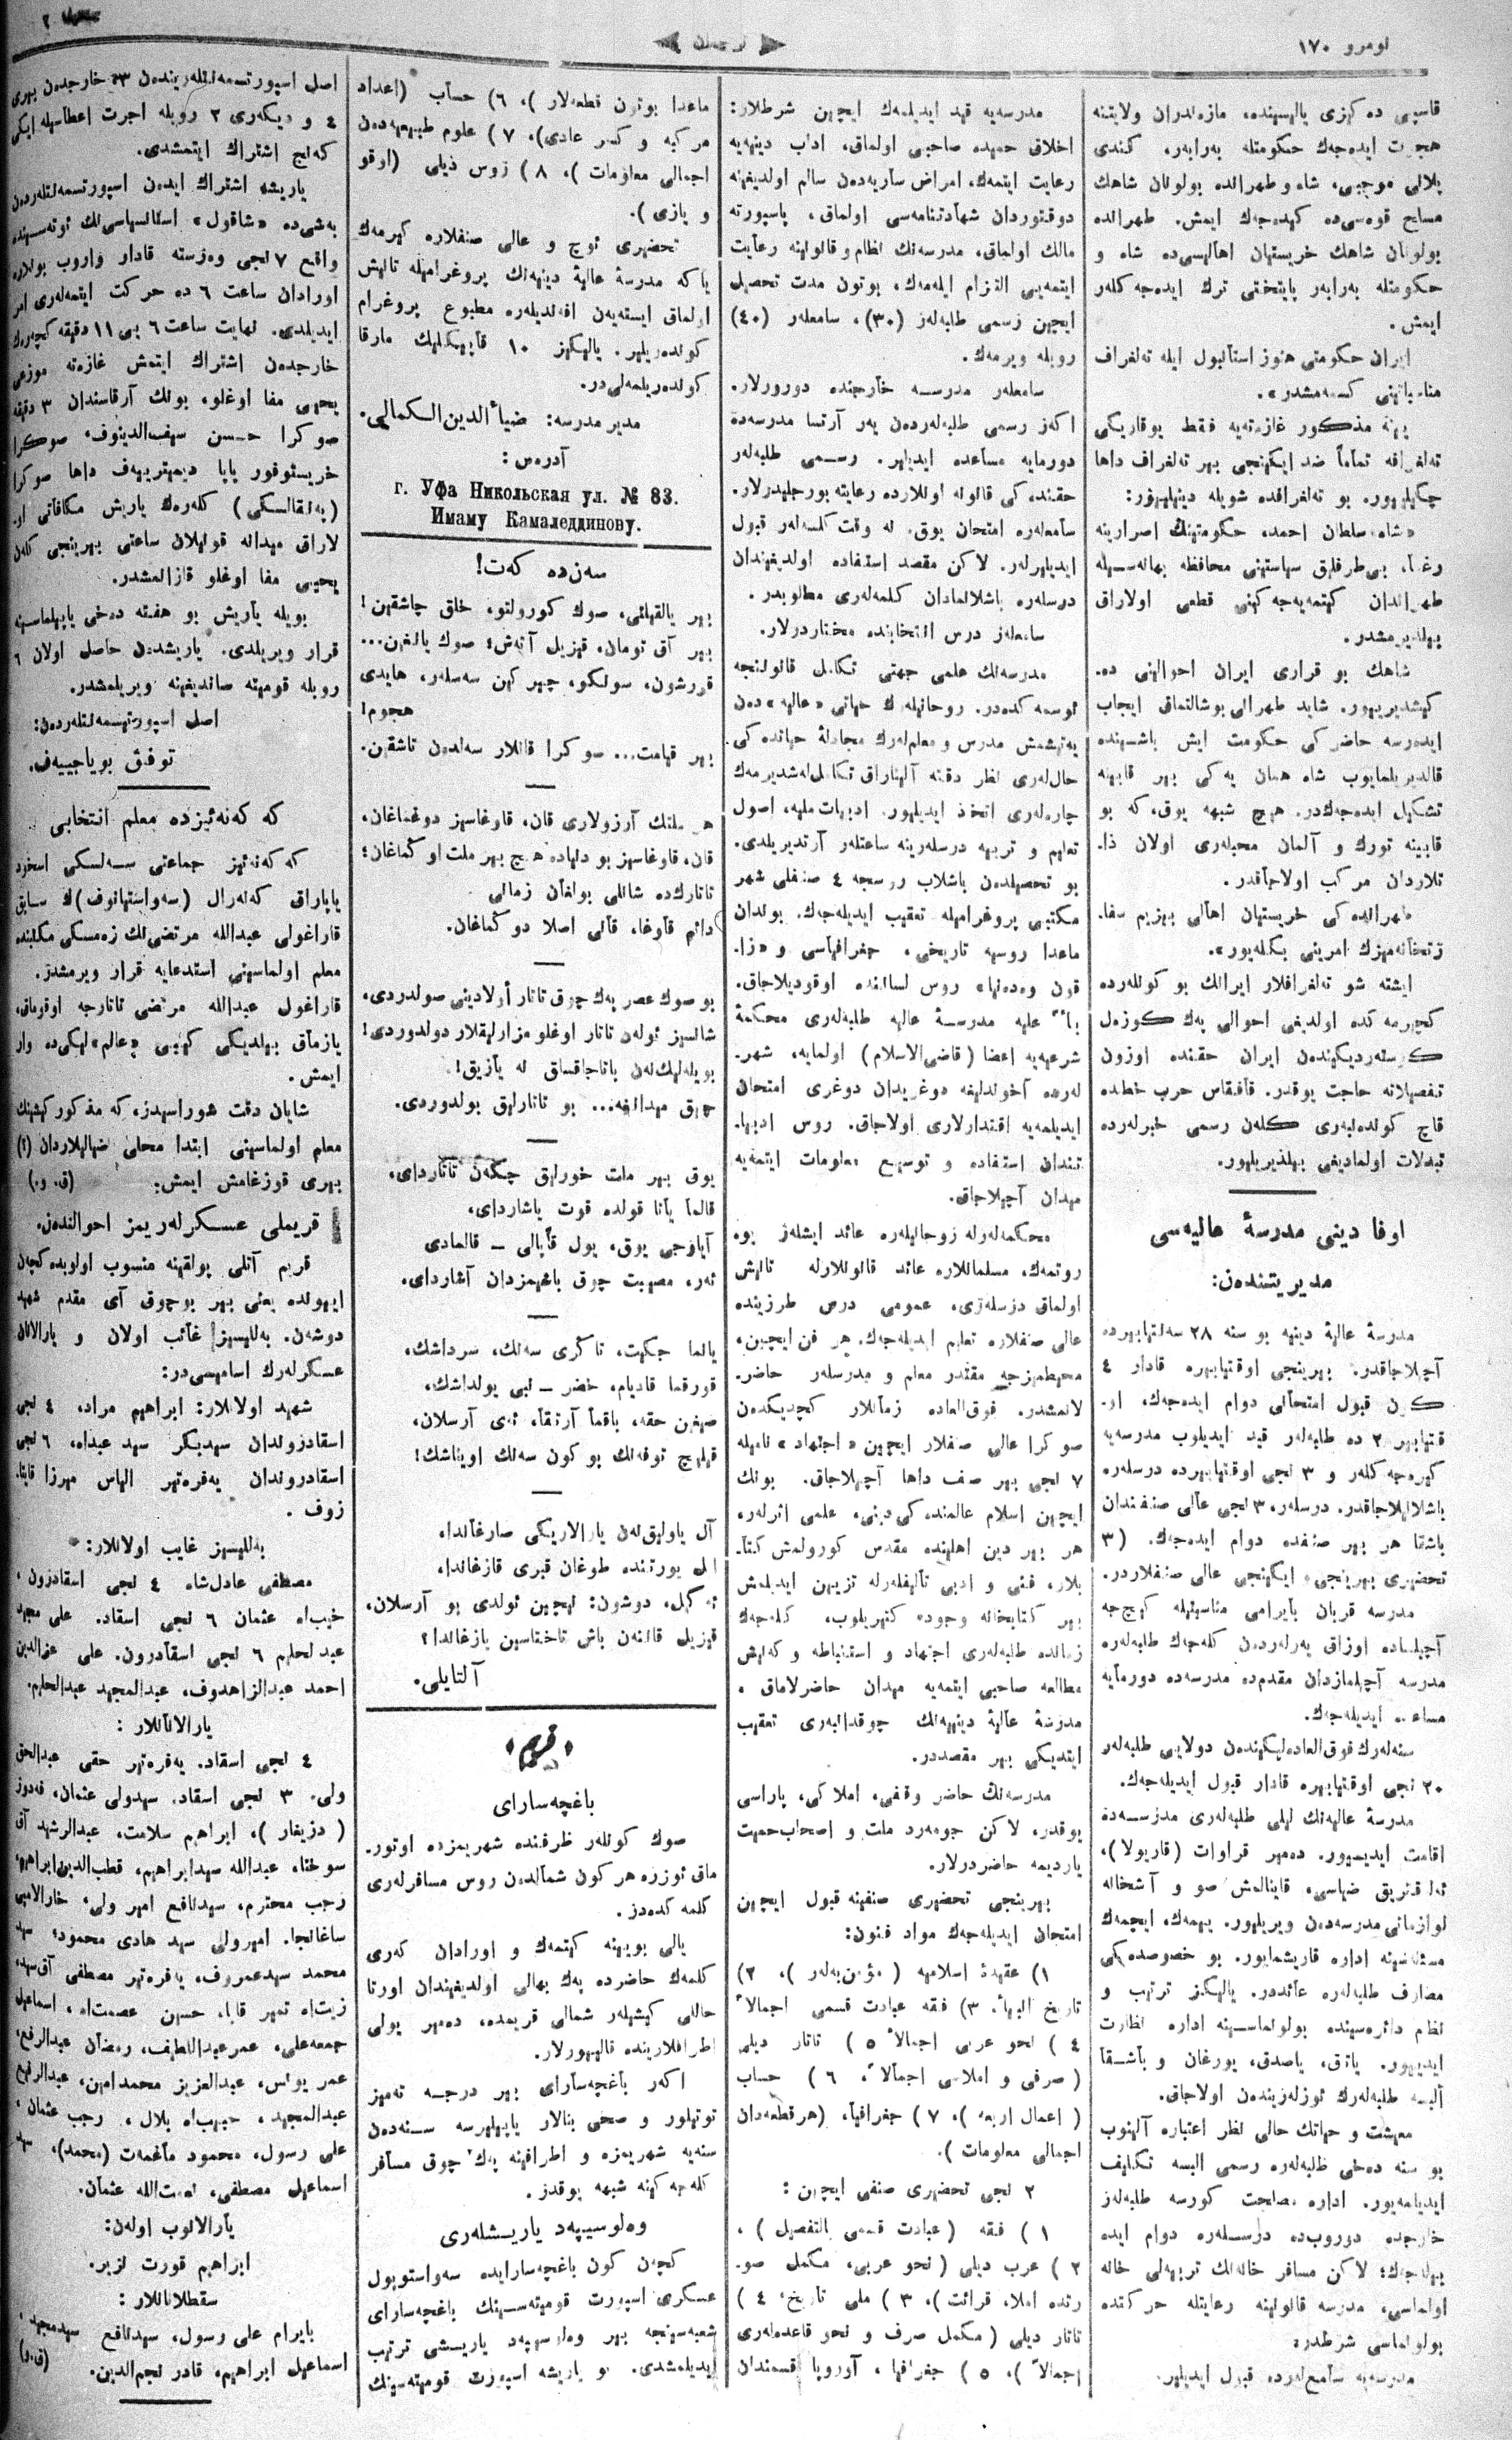 نومرو ١٧٠
ترجمان
صحيفه ٢
قاسپی ده‌ڭزی ياليسينده، مازه‌ندران ولايتنه
هجرت ايده‌جه‌ك حكومتله به‌رابه‌ر، كندی
پلانی موجبی، شاه و طهرانده بولونان شاهك
مسلح قوه‌سی‌ده كيده‌جه‌ك ايمش. طهرانده
بولونان شاهك خريستيان اهاليسی‌ده شاه و
حكومتله به‌رابه‌ر پايتختی ترك ايده‌جه‌كلر
ايمش.
ايران حكومتی هنوز استانبول ايله ته‌لغراف
مناسباتنی كسمه‌مشدر».
ينه مذكور غازه‌ته‌يه فقط يوقاريكی
ته‌لغرافه تماماً ضد ايكينجی بير ته‌لغراف داها
چكيليور. بو ته‌لغرافده شويله دينيليور:
«شاه سلطان احمد، حكومتينك اصرارينه
رغماً، بی‌طرفلق سياستينی محافظه بهانه‌سيله
طهراندان كيتمه‌يه‌جه‌كينی قطعی اولاراق
بيلديرمشدر.
شاهك بو قراری ايران احوالينی ده‌-
كيشديريور. شايد طهرانی بوشالتماق ايجاب
ايده‌رسه حاضركی حكومت ايش باشينده
قالديريلمايوب شاه همان يه‌كی بير قابينه
تشكيل ايده‌جه‌كدر. هيچ شبهه يوق، كه بو
قابينه تورك و آلمان محبله‌ری اولان ذا-
تلاردان مركب اولاجاقدر.
طهرانده‌كی خريستيان اهالی بيزيم سفا-
رتخانه‌ميزك امرينی بكله‌يور».
ايشته شو ته‌لغرافلار ايرانك بو كونلرده
كچيرمه‌كده اولديغی احوالی پك كوزه‌ل
كوسته‌رديكيندن ايران حقنده اوزون
تفصيلاته حاجت يوقدر. قافقاس حرب خطده
قاچ كونده‌نبه‌ری كلن رسمی خبرلرده
تبدلات اولماديغی بيلديريليور.
اوفا دينی مدرسۀ عاليه‌سی
مديريتندن:
مدرسۀ عاليۀ دينيه بو سنه ٢٨ سه‌نتيابيرده
آچيلاجاقدر. بيرينجی اوقتيابيره قادار ٤
كون قبول امتحانی دوام ايده‌جه‌ك، او-
قتيابير ٢ ده طلبه‌لر قيد ايديلوب مدرسه‌يه
كيره‌جه‌كلر و ٣ نجی اوقتيابيرده درسلره
باشلانيلاجاقدر. درسلر، ٣ نجی عالی صنفندان
باشقا هر بير صنفده دوام ايده‌جه‌ك. (٣
تحضيری بيرينجی، ايكينجی عالی صنفلاردر.
مدرسه قربان بايرامی مناسبتيله كيچ‌جه
آچيلسه‌ده اوزاق يه‌رلردن كله‌جه‌ك طلبه‌لره
مدرسه آچيلمازدان مقدم‌ده مدرسه‌ده دورمايه
مساعده ايديله‌جه‌ك.
سنه‌لرك فوق‌العاده‌ليكيندن دولايی طلبه‌لر
٢٠ نجی اوقتيابيره قادار قبول ايديله‌جه‌ك.
مدرسۀ عاليه‌نك ليلی طلبه‌لری مدرسه‌ده
اقامت ايديیور. ده‌مير قراوات (قاريولا)،
ئه‌لقتريق ضياسی، قاينالمش صو و آشخانه
لوازماتی مدرسه‌دن ويريليور. ييمه‌ك، ايچمه‌ك
مسئله‌سينه اداره قاريشمايور. بو خصوصده‌كی
مصارف طلبه‌لره عائددر. يالڭز ترتيب و
نظام دائره‌سينده بولونماسينه اداره نظارت
ايدييور. ياتق، ياصدق، يورغان و باشقا
البسه طلبه‌لرك ئوزلرينده‌ن اولاجاق.
معيشت و حياتك حالی نظر اعتباره آلنوب
بو سنه ده‌خی طلبه‌لره رسمی البسه تكليف
ايديلمه‌يور. اداره مصلحت كورسه طلبه‌لر
خارجده دوروب‌ده درسلره دوام ايده
بيله‌جه‌ك؛ لاكن مسافر خانه‌نك تربيه‌لی خانه
اولماسی، مدرسه قانونينه رعايتله حركتده
بولونماسی شرطدر.
مدرسه‌يه سامع‌لرده قبول ايديلير.
مدرسه‌يه قيد ايديلمه‌ك ايچين شرطلار:
اخلاق حميده صاحبی اولماق، اداب دينيه‌يه
رعايت ايتمه‌ك، امراض ساريه‌دن سالم اولديغينه
دوقتوردان شهادتنامه‌سی اولماق، پاسپورته
مالك اولماق، مدرسه‌نك نظام و قانونينه رعايت
ايتمه‌يی التزام ايله‌مه‌ك، بوتون مدت تحصيل
ايچين رسمی طلبه‌لر (٣٠)، سامعلر (٤٠)
روبله ويرمه‌ك.
سامعلر مدرسه خارجنده دورورلار.
اكر رسمی طلبه‌لردن يه‌ر آرتسا مدرسه‌ده
دورمايه مساعده ايديلير. رسمی طلبه‌لر
حقنده‌كی قانونه اونلارده رعايته بورجليدرلار.
سامعلره امتحان يوق. نه وقت كلسه‌لر قبول
ايديليرلر. لاكن مقصد استفاده اولديغيندان
درسلره باشلانمادان كلمه‌لری مطلوبدر.
سامعلر درس انتخابنده مختاردرلار.
مدرسه‌نك علمی جهتی تكامل قانونينجه
ئوسمه‌كده‌در. روحانيلرك حياتی «عاليه»‌دن
يه‌تيشمش مدرس و معلم‌لرك مجادلۀ حياتده‌كی
حال‌لری نظر دقته آليناراق تكامل‌له‌شديرمه‌ك
چاره‌لری اتخاذ ايديليور. ادبيات مليه، اصول
تعليم و تربيه درسلرينه ساعتلر آرتديريلدی.
بو تحصيلدن باشلاب روسجه ٤ صنفلی شهر
مكتبی پروغراميله تعقيب ايديله‌جه‌ك. بوندان
ماعدا روسيه تاريخی، جغرافياسی و «زا-
قون وه‌ده‌نيا» روس لساننده اوقوديلاجاق.
بناءً عليه مدرسۀ عاليه طلبه‌لری محكمۀ
شرعيه‌يه اعضا (قاضی‌الاسلام) اولمايه، شهر-
لرده آخوندليغه دوغريدان دوغری امتحان
ايديلمه‌يه اقتدارلاری اولاجاق. روس ادبيا-
تندان استفاده و توسيع معلومات ايتمه‌يه
ميدان آچيلاجاق.
محكمه‌لرله زوحانيلره عائد ايشلر يو-
روتمه‌ك، مسلمانلاره عائد قانونلارله تانيش
اولماق درسلری، عمومی درس طرزينده
عالی صنفلارده تعليم ايديله‌جه‌ك. هر فن ايچين،
محيطميزجه مقتدر معلم و مدرسلر حاضر-
لانمشدر. فوق‌العاده زمانلار كچديكدن
صوكرا عالی صنفلار ايچين «اجتهاد» ناميله
٧ نجی بير صنف داها آچيلاجاق. بونك
ايچين اسلام عالمنده‌كی دينی، علمی اثرلر،
هر بير دين اهلينده مقدس كورولمش كتا-
بلار، فنی و ادبی تأليفلرله تزيين ايديلمش
بير كتابخانه وجوده كتيريلوب، كله‌جه‌ك
زمانده طلبه‌لری اجتهاد و استنباطه و كنيش
مطالعه صاحبی ايتمه‌يه ميدان حاضرلاماق،
مدرسۀ عاليۀ دينيه‌نك چوقدانبه‌ری تعقيب
ايتديكی بير مقصددر.
مدرسه‌نڭ حاضر وقفی، املاكی، پاراسی
يوقدر، لاكن جومه‌رد ملت و اصحاب حميت
يارديمه حاضردرلار.
بيرينجی تحضيری صنفينه قبول ايچين
امتحان ايديله‌جه‌ك مواد فنون:
١) عقيدۀ اسلاميه (مؤمن‌به‌لر)، ٢)
تاريخ انبيا، ٣) فقه عبادت قسمی اجمالاً
٤) نحو عربی اجمالاً ٥) تاتار ديلی
(صرفی و املاسی اجمالاً)، ٦) حساب
(اعمال اربعه)، ٧) جغرافيا، (هرقطعه‌دان
اجمالی معلومات).
٢ نجی تحضيری صنفی ايچين:
١) فقه (عبادت قسمی بالتفصيل)،
٢) عرب ديلی (نحو عربی، مكمل صو-
رتده املا، قرائت)، ٣) ملی تاريخ، ٤)
تاتار ديلی (مكمل صرف و نحو قاعده‌لری
اجمالاً)، ٥) جغرافيا، آوروپا قسمندان
ماعدا بوتون قطعه‌لار)، ٦) حساب (اعداد
مركبه و كسر عادی)، ٧) علوم طبيعيه‌دن
اجمالی معلومات)، ٨) روس ديلی (اوقو
و يازی).
تحضيری ئوچ و عالی صنفلاره كيرمه‌ك
ياكه مدرسۀ عاليۀ دينيه‌نك پروغراميله تانيش
اولماق ايسته‌يه‌ن افنديلره مطبوع پروغرام
كونده‌ريلير. يالڭيز ١٠ قاپيكليك مارقا
كونده‌ريلمه‌لی‌در.
مدير مدرسه: ضياءالدين‌الكمالی.
آدرس:
г. Уфа Никольская ул. № 83.
Имаму Камаледдинову.
سه‌ن‌ده كه‌ت!
بير يالقيناتی، صوك كورولتو، خلق چاشقين!
بير آق تومان، قيزيل آتش؛ صوك يانغين...
قورشون، سونكو، چيركين سه‌سلر، هايدی
هجوم!
بير قيامت... صوكرا قانلار سه‌لدن تاشقين.
هر ملتك آرزولاری قان، قاوغاسيز دوغماغان،
قان، قاوغاسيز بو دنياده هيچ بير ملت اوڭماغان؛
تاتارك‌ده شانلی بولغان زمانی
دائم قاوغا، قانی اصلا دوڭماغان.
بو صوك عصر پك چوق تاتار أولادينی صولدردی،
شانسيز ئولن تاتار اوغلو مزارليقلار دولدوردی!
بويله‌ليك‌لن باتاجاقساق نه يازيق!
چيق ميدانغه... بو تاتارليق بولدوردی.
يوق بير ملت خورليق چكه‌ن تاتاردای،
قالما يانا قولده قوت ياشاردای،
آياوجی يوق، يول قاپالی ــ قالمادی
ئه‌ر، مصيبت چوق باشيمزدان آشاردای.
يانما جكيت، تاڭری سه‌نك، سرداشك،
قورقما قاديام، خضر ــ نبی يولداشك،
صيغين حقه، باقما آرتقا، ئه‌ی آرسلان،
قيليچ توفه‌نك بو كون سه‌نك اويناشك!
آل ياوليق‌لن يارالاريكی صارغاندا،
ايل يورتنده طوغان قبری قازغاندا،
ئه‌كيل، دوشون: نيچين ئولدی بو آرسلان،
قيزيل قانلن باش تاختاسين يازغاندا؟
آلتايلی.
«قريم»
باغچه‌سارای
صوك كونلر ظرفنده شهريمزده اوتور-
ماق ئوزره هر كون شمالدن روس مسافرلری
كلمه‌كده‌در.
يالی بويينه كيتمه‌ك و اورادان كه‌ری
كلمه‌ك حاضرده پك بهالی اولديغيندان اورتا
حاللی كيشيلر شمالی قريمده، ده‌مير يولی
اطرافلارينده قالييورلار.
اكر باغچه‌سارای بير درجه ته‌ميز
توتيلور و صحی بنالار ياپيليرسه سنه‌دن
سنه‌يه شهريمزه و اطرافينه پك چوق مسافر
كله‌جه‌كينه شبهه يوقدر.
وه‌لوسيپه‌د ياريشلری
كچن كون باغچه‌سارايده سه‌واستوپول
عسكری اسپورت قوميته‌سينك باغچه‌سارای
شعبه‌سينجه بير وه‌لوسيپه‌د ياريشی ترتيب
ايديلمشدی. بو ياريشه اسپورت قوميته‌سينك
اصل اسپورتسمه‌نلرينده‌ن ٣، خارجدن بيری
٤ و ديكه‌ری ٢ روبله اجرت اعطاسيله ايكی
كنج اشتراك ايتمشدی.
ياريشه اشتراك ايدن اسپورتسمه‌نلردن
به‌شی‌ده «شاقول» استانسياسی‌نك ئوته‌سينده
واقع ٧ نجی وه‌رسته قادار واروب بونلارده
اورادان ساعت ٦ ده حركت ايتمه‌لری امر
ايديلدی. نهايت ساعت ٦ يی ١١ دقيقه كچه‌رك
خارجدن اشتراك ايتمش غازه‌ته موزعی
يحيی مفا اوغلو، بونك آرقاسندان ٣ دقيقه
صوكرا حسن سيف‌الدينوف، صوكرا
خريستوفور پاپا ديميتريه‌ف داها صوكرا
(به‌لقالسكی) كله‌رك ياريش مكافاتی او-
لاراق ميدانه قويلان ساعتی بيرينجی كلن
يحيی مفا اوغلو قازانمشدر.
بويله ياريش بو هفته ده‌خی ياپيلماسينه
قرار ويريلدی. ياريشدن حاصل اولان ٦
روبله قوميته صانديغينه ويريلمشدر.
اصل اسپورتسمه‌نلردن:
توفيق بوياجييه‌ف.
كه كه‌نه‌ئيزده معلم انتخابی
كه كه‌نه‌ئيز جماعتی سه‌لسكی اسخود
ياپاراق كه‌نه‌رال (سه‌واستيانوف)ك سابق
قاراغولی عبدالله مرتضی‌نك زه‌مسكی مكتبنده
معلم اولماسينی استدعايه قرار ويرمشدر.
قاراغول عبدالله مرتضی تاتارجه اوقوماق،
يازماق بيلديكی كيبی «عالم»ليكی‌ده وار
ايمش.
شايان دقت شوراسيدر، كه مذكور كيشينك
معلم اولماسينی ابتدا محلی ضياليلاردان (؟)
بيری قوزغامش ايمش. (ق. و.)
قريملی عسكرلريمز احوالندن.
قريم آتلی پولقينه منسوب اولوبده كچن
اييولده يعنی بير بوچوق آی مقدم شهيد
دوشن. به‌لليسيز غائب اولان و يارالانان
عسكرلرك اساميسی‌در:
شهيد اولانلار: ابراهيم مراد، ٤ نجی
اسقادروندان سيدبكر سيد عبدالله، ٦ نجی
اسقادروندان يه‌فره‌تير الياس ميرزا قايتا-
زوف.
به‌لليسيز غايب اولانلار:
مصطفی عادل‌شاه ٤ نجی اسقادرون،
حبيب‌الله عثمان ٦ نجی اسقاد. علی مجيد
عبدالحليم ٦ نجی اسقادرون. علی عزالدين
احمد عبدالزاهدوف، عبدالمجيد عبدالحليم.
يارالانانلار:
٤ نجی اسقاد. يه‌فره‌تير حقی عبدالحق
ولی. ٣ نجی اسقاد. سيدولی عثمان،
(دزيغار)، ابراهيم سلامت، عبدالرشيد آق
سوختا، عبدالله سيدابراهيم، قطب‌الدين ابراهيم،
رجب محترم، سيدنافع امير ولی،
ساغانجا. اميرولی سيد هادی محمود، سيد
محمد سيدعمروف، يه‌فره‌تير مصطفی آق‌سيد،
زيت‌الله تمير قايا، حسين عصمت‌الله، اسماعيل
جمعه‌علی، عمر عبداللطيف، رمضان عبدالرفيع،
عمر يونس، عبدالعزيز محمدامين، عبدالرفيع
عبدالمجيد، حبيب‌الله بلال، رجب عثمان،
علی رسول، محمود ماغمه‌ت (محمد)، سيد
اسماعيل مصطفی، نعمت‌الله عثمان.
يارالانوب اولن:
ابراهيم قورت نزير.
سقطلانانلار:
بايرام علی رسول، سيدنافع سيدمجيد،
اسماعيل ابراهيم، قادر نجم‌الدين. (ق. و)